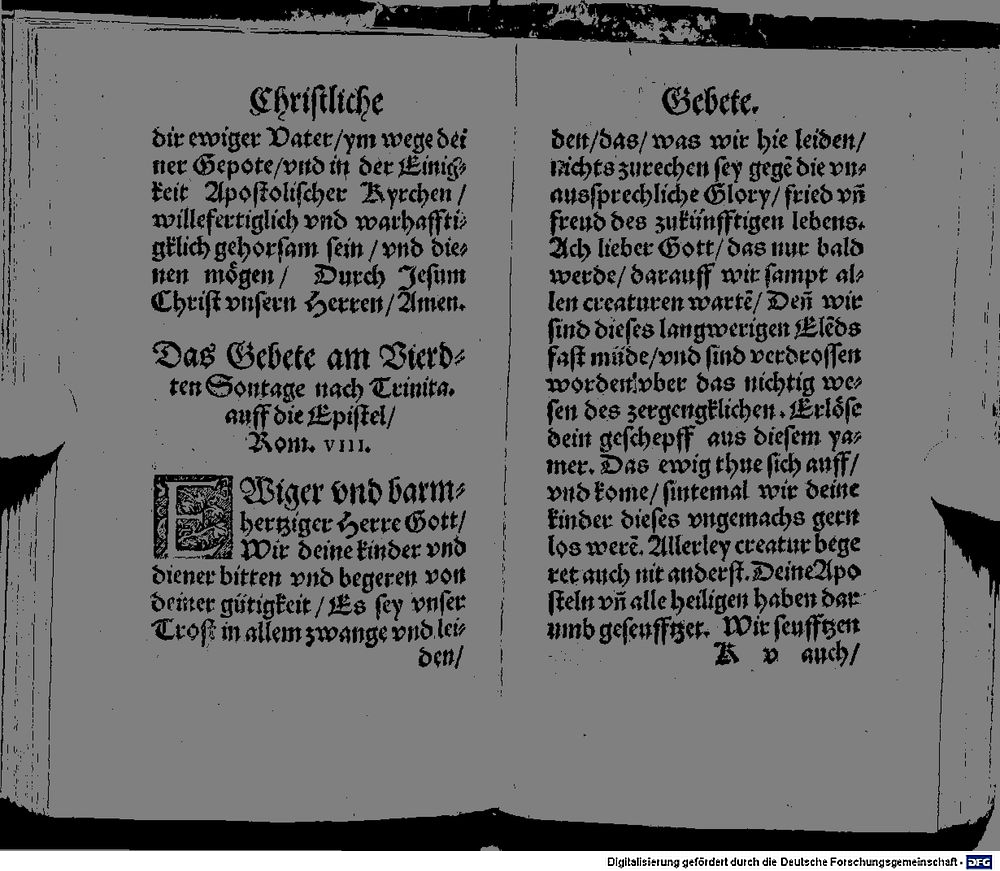 Christliche
dir ewiger Vater/ym wege dei
ner Gepote/vnd in der Einig⸗
keit Apostolischer Kyrchen/
willefertiglich vnd warhaffti⸗
gklich gehorsam sein/vnd die⸗
nen mögen/ Durch Jesum
Christ vnsern Herren/Amen.
Das Gebete am Vierd⸗
ten Sontage nach Trinita.
auff die Epistel/
Rom. VIII.
EWiger vnd barm⸗
hertziger Herre Gott/
Wir deine kinder vnd
diener bitten vnd begeren von
deiner gütigkeit/Es sey vnser
Trost in allem zwange vnd lei⸗
den/
Gebete.
den/das/ was wir hie leiden/
nichts zurechen sey gegē die vn⸗
aussprechliche Glory/ fried vn̄
freud des zukünfftigen lebens.
Ach lieber Gott/das nur bald
werde/ darauff wir sampt al⸗
len creaturen wartē/ Den̄ wir
sind dieses langwerigen Elēds
fast müde/vnd sind verdrossen
worden vber das nichtig we⸗
sen des zergengklichen. Erlöse
dein geschepff aus diesem ya⸗
mer. Das ewig thue sich auff/
vnd kome/ sintemal wir deine
kinder dieses vngemachs gern
los werē. Allerley creatur bege
ret auch nit anderst. Deine Apo
steln vn̄ alle heiligen haben dar
umb geseufftzet. Wir seufftzen
K v auch/
Digitalisierung gefördert durch die Deutsche Forschungsgemeinschaft - DFG